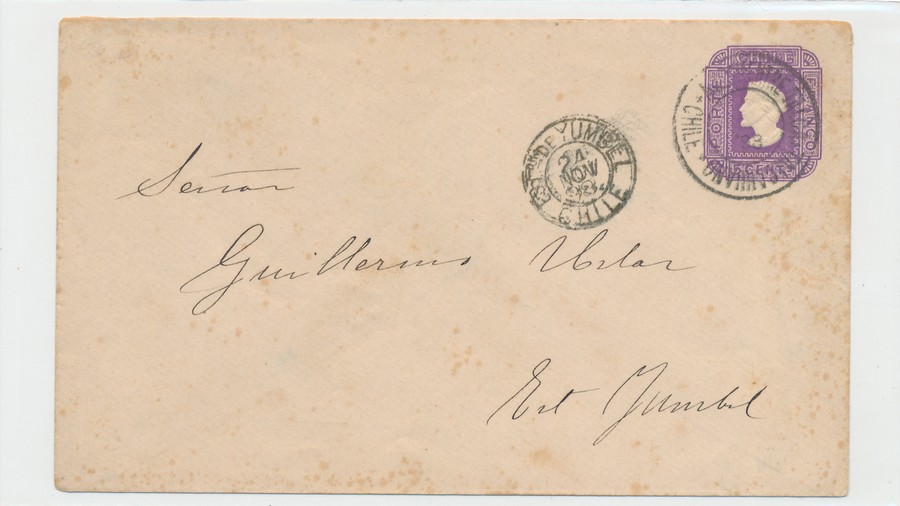 CHILE
PORTE FRANCO
5 CENT
CHILE
DE YUMBEL
24
NOV
CHILE
Señor
Guillermo
Est Yumbel